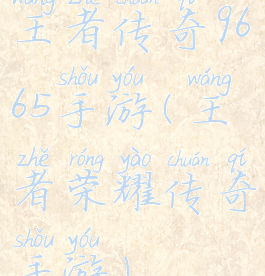 wáng zhě chuán qí
王者传奇96
shǒu yóu wáng
65手游(王
zhě róng yào chuán qí
者荣耀传奇
shǒu yóu
手游)